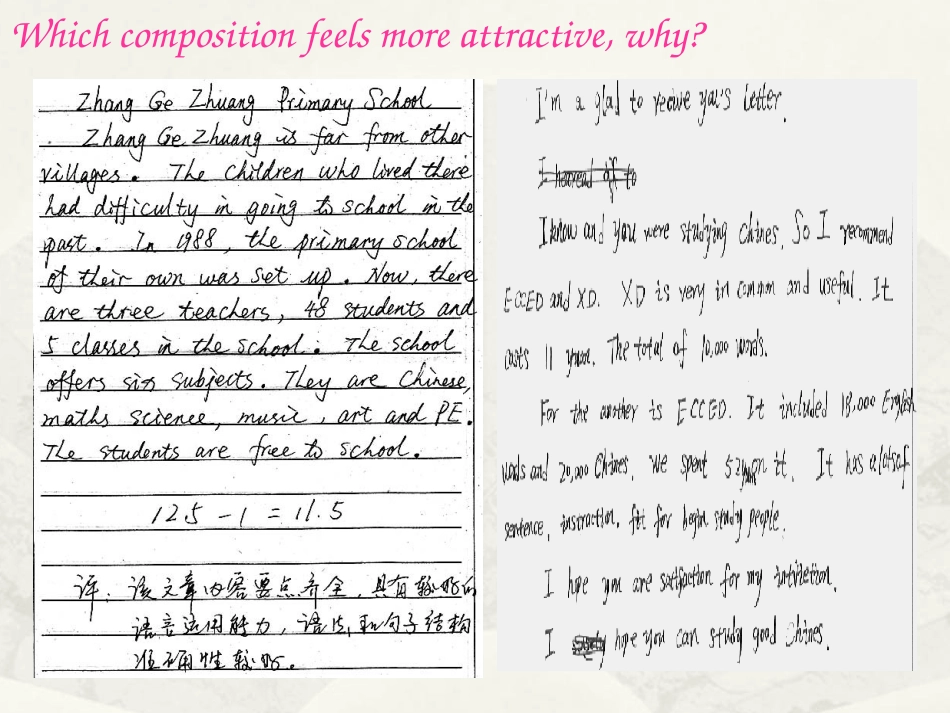 Which composition feels more attractive, why?
Zhang Ge Zhuang Primary School
Zhang Ge Zhuang is far from other
villages. The children who lived there
had difficulty in going to school in the
past. In 1988, the primary school
of their own was set up. Now, there
are three teachers, 48 students and
5 classes in the school. The school
offers six subjects. They are Chinese,
maths science, music, art and PE.
The students are free to school.
12.5 - 1 = 11.5
评：该文章内容要点齐全，具有较好的
语言运用能力，语法和句子结构
准确性较好。
I'm a glad to recive you's letter.
I to
I know and you were studying chines. So I recommend
ECCED and XD. XD is very in common and useful. It
costs 11 yuan. The total of 10,000 words.
For the another is ECCED. It included 18,000 English
words and 20,000 Chines. We spent 52 yuan it. It has a lot of
sentence, instraction. fit for begin study people.
I hope you are satisfaction for my
I hope you can study good Chines.